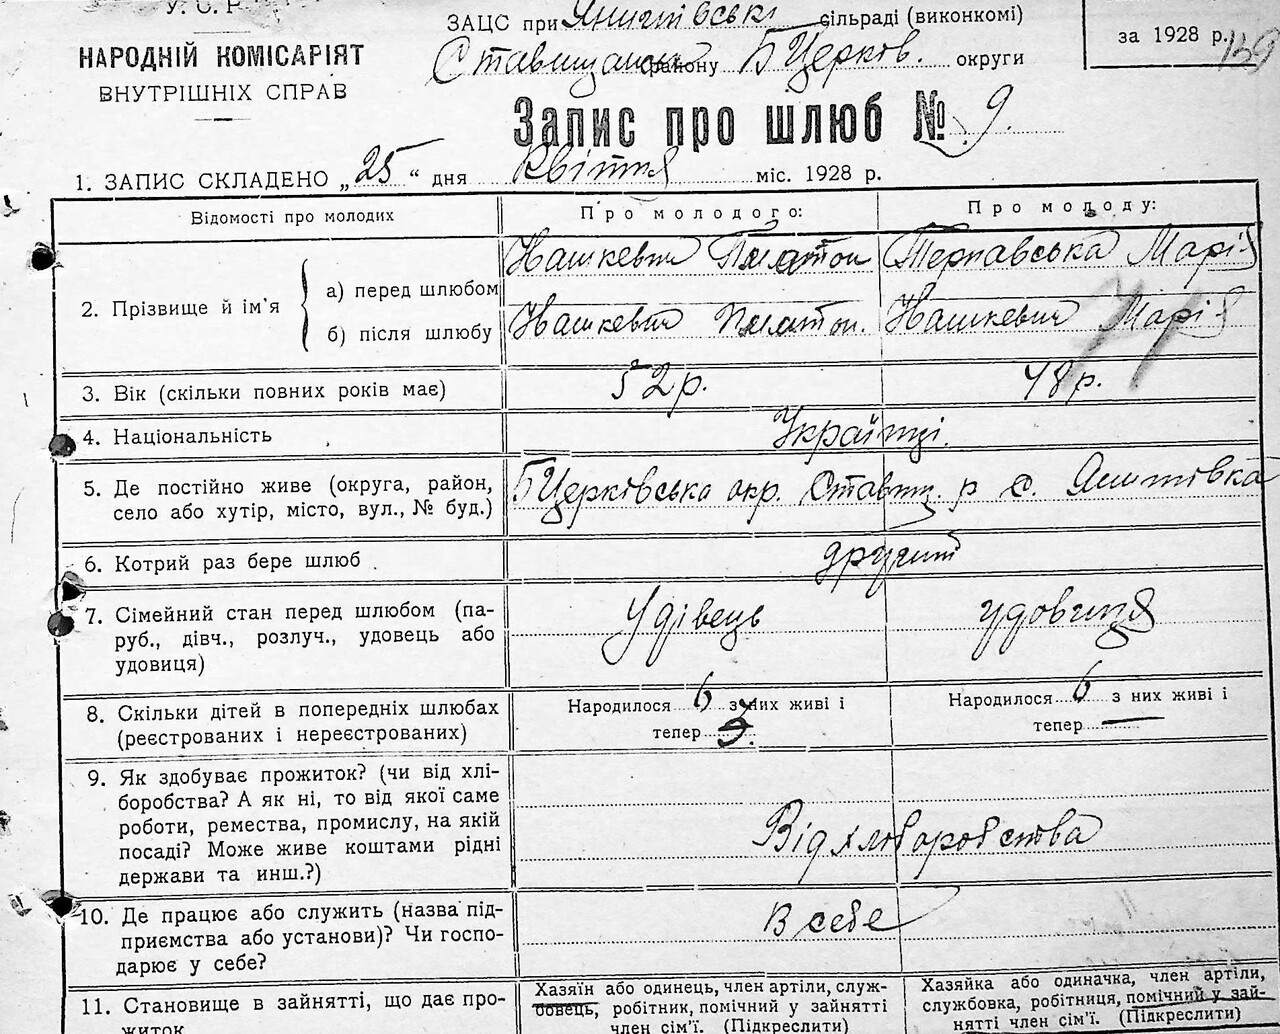 У. С. Р.
НАРОДНІЙ КОМІСАРІЯТ
ВНУТРІШНІХ СПРАВ
ЗАЦС при Янишівські сільраді (виконкомі)
Ставищанськ району БЦерков. округи
за 1928 р. 159
Запис про шлюб № 9.
1. ЗАПИС СКЛАДЕНО „25“ дня Квітня міс. 1928 р.
Відомості про молодих
Про молодого:
Про молоду:
2. Прізвище й ім'я
а) перед шлюбом
Нашкевич Платон
Тернавська Марія
б) після шлюбу
Нашкевич Платон.
Нашкевич Марія
3. Вік (скільки повних років має)
52 р.
48 р.
4. Національність
Українці.
5. Де постійно живе (округа, район,
село або хутір, місто, вул., № буд.)
БЦерківська окр. Ставищ. р с.
6. Котрий раз бере шлюб
другий
7. Сімейний стан перед шлюбом (па-
руб., дівч., розлуч., удовець або
удовиця)
Удівець
удовиця
8. Скільки дітей в попередніх шлюбах
(реєстрованих і нереєстрованих)
Народилося 6 з них живі і
тепер 3.
Народилося 6 з них живі і
тепер —
9. Як здобуває прожиток? (чи від хлі-
боробства? А як ні, то від якої саме
роботи, ремества, промислу, на якій
посаді? Може живе коштами рідні
держави та инш.?)
Від хліборобства
10. Де працює або служить (назва під-
приємства або установи)? Чи госпо-
дарює у себе?
В себе
11. Становище в зайнятті, що дає про-
житок
Хазяїн або одинець, член артіли, служ-
бовець, робітник, помічний у зайнятті
член сім'ї. (Підкреслити)
Хазяйка або одиначка, член артіли,
службовка, робітниця, помічний у зай-
нятті член сім'ї. (Підкреслити)